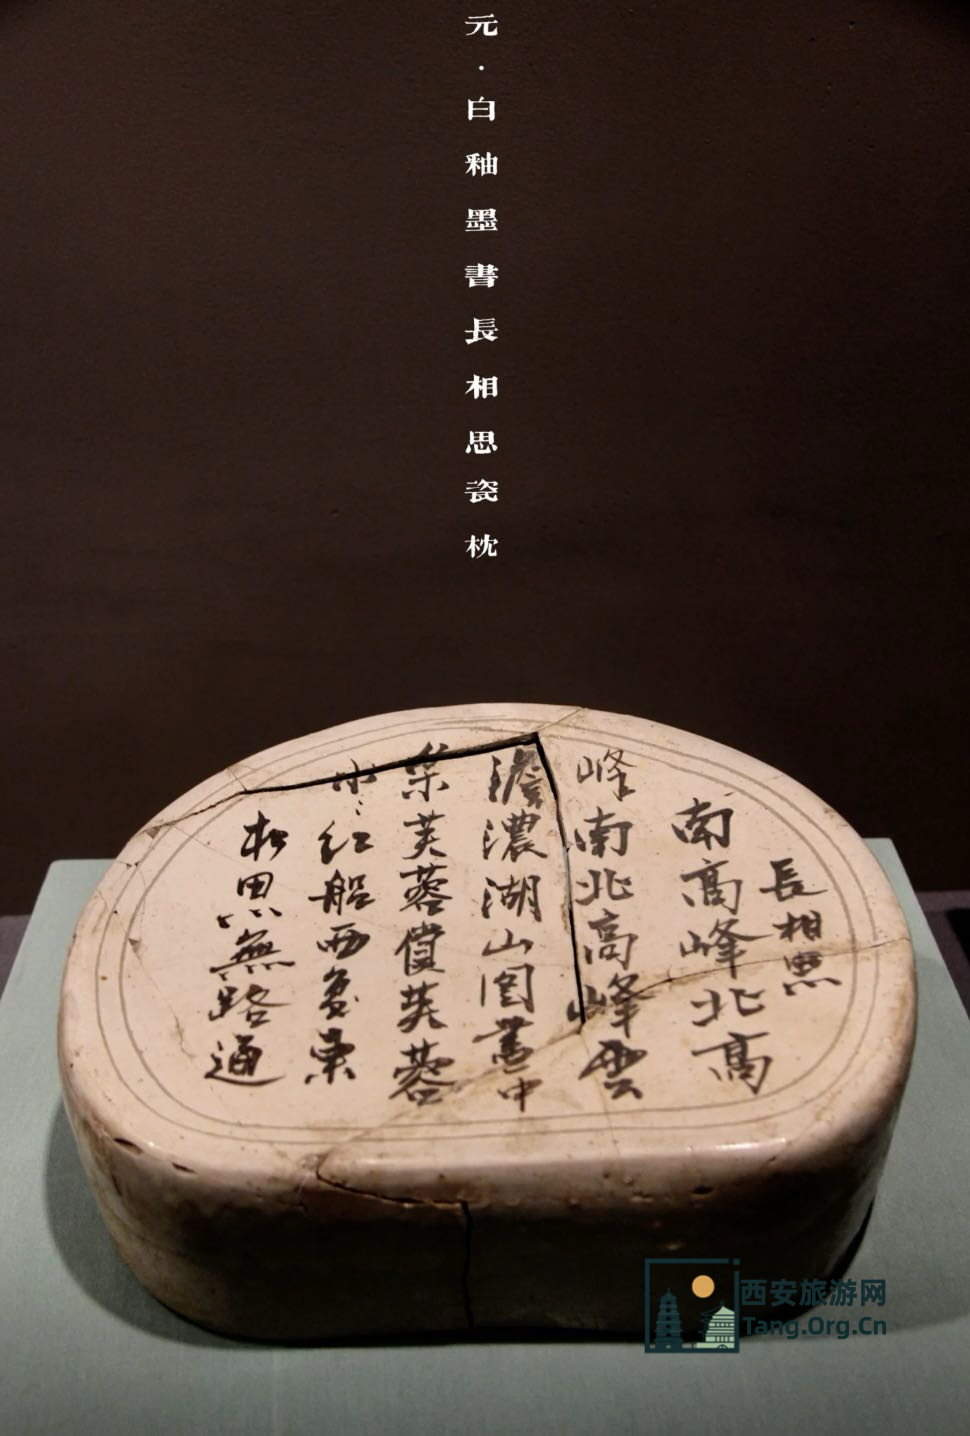 元·白釉墨書長相思瓷枕
長相思
南高峰北高
峰南北高峰雲
澹濃湖山圖畫中
采芙蓉賞芙蓉
小〻紅船西復東
相思無路通
西安旅游网
Tang.Org.Cn